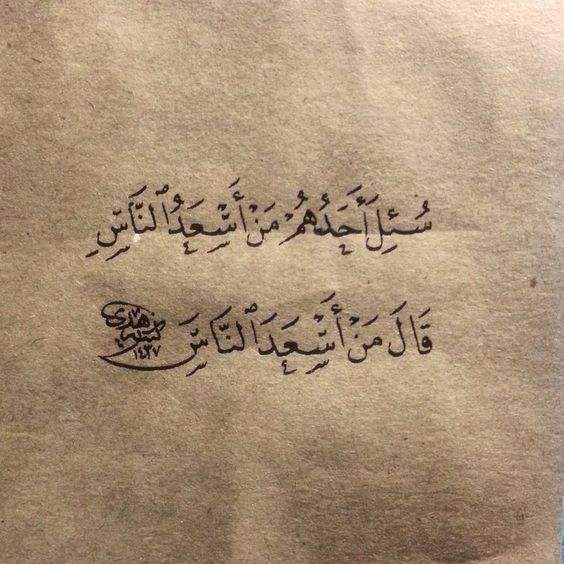 سُئِلَ أَحَدُهُمْ مَنْ أَسْعَدُ ٱلنَّاسِ
قَالَ مَنْ أَسْعَدَ ٱلنَّاسَ
١٤٣٧